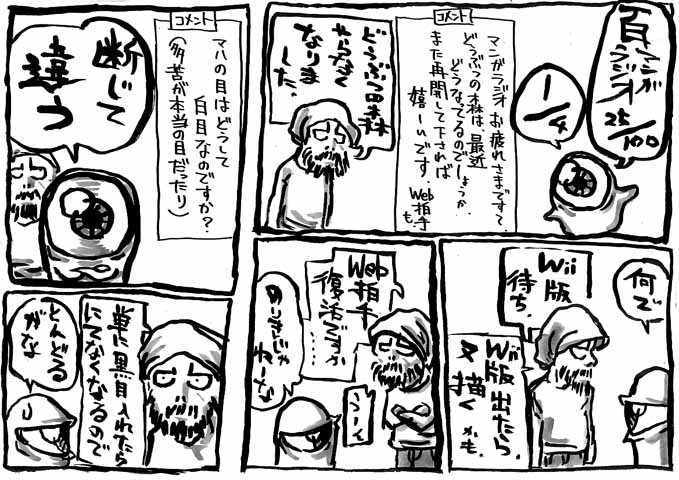 百マンガ
ラジオ
25/100
1/4
コメント
マンガラジオ お疲れさまですて
どうぶつの森は 最近
どうなってるのでしょうか。
また再開して下されば
嬉しいです。
Web拍手
も
どうぶつの森
やらなく
なりま
した。
何で
Wii
版
待ち
Wii
版出たら
又描く
かも。
Web
拍手
復活ですか
……
うーん
のりきじゃ
ねーな
コメント
マハの目はどうして
白目なのですか?
(多苦が本当の目だったり)
断じて
違う
単に黒目入れたら
にてなくなるので
とんどる
がな